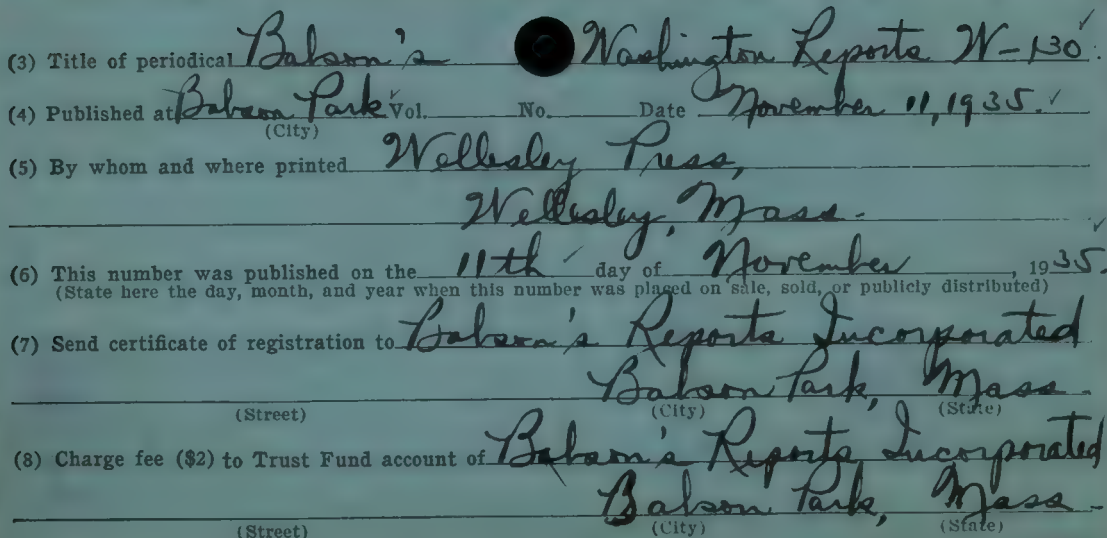 (3) Title of periodical Babson's Washington Reports W-130.
(4) Published at Babson Park Vol. No. Date November 11, 1935.
(City)
(5) By whom and where printed Wellesley Press,
Wellesley, Mass.
(6) This number was published on the 11th day of November, 1935.
(State here the day, month, and year when this number was placed on sale, sold, or publicly distributed)
(7) Send certificate of registration to Babson's Reports Incorporated
Babson Park, Mass.
(Street) (City) (State)
(8) Charge fee ($2) to Trust Fund account of Babson's Reports Incorporated
Babson Park, Mass.
(Street) (City) (State)